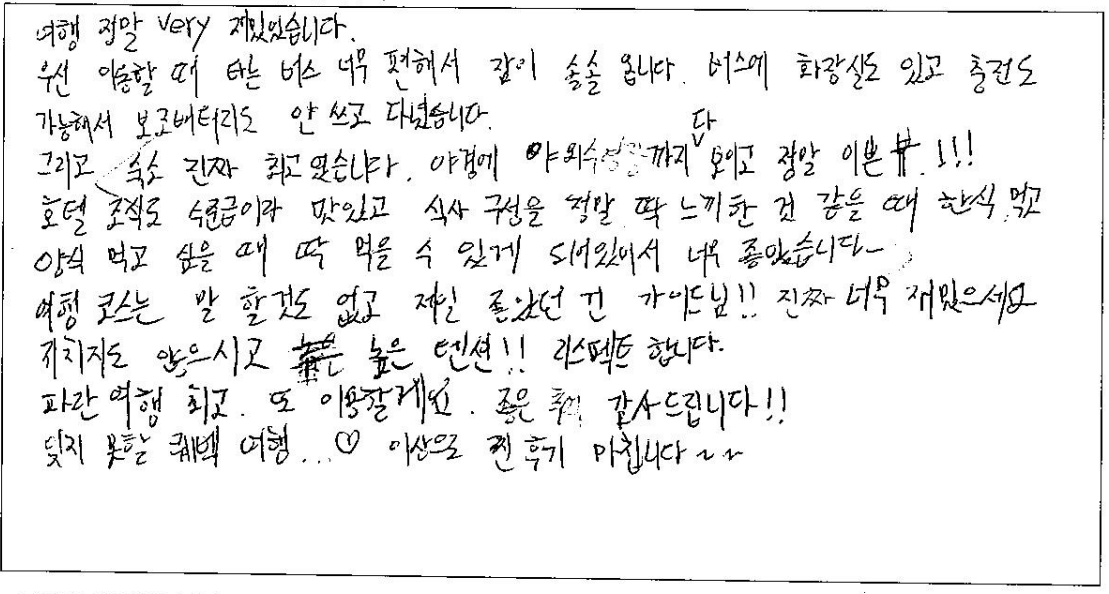 여행 정말 very 재밌었습니다.
우선 이동할 때 타는 버스 너무 편해서 잠이 솔솔 옵니다. 버스에 화장실도 있고 충전도
가능해서 보조배터리도 안 쓰고 다녔습니다.
그리고 숙소 진짜 최고였습니다. 야경에 야외수영장까지 다 보이고 정말 이쁜 !!!
호텔 조식도 수준급이라 맛있고 식사 구성을 정말 딱 느끼한 것 같을 때 한식 먹고
양식 먹고 싶을 때 딱 먹을 수 있게 되어있어서 너무 좋았습니다~
여행 코스는 말 할것도 없고 제일 좋았던 건 가이드님!! 진짜 너무 재밌으세요
지치지도 않으시고 높은 텐션!! 리스펙트 합니다.
파란여행 최고. 또 이용할게요. 좋은 감사드립니다!!
잊지 못할 퀘벡 여행...♡ 이상으로 찐 후기 마칩니다~~